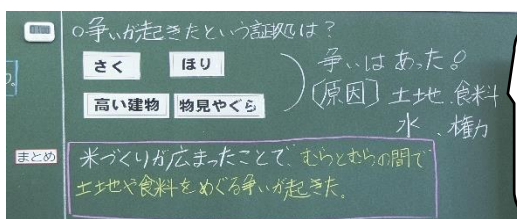 ○争いが起きたという証拠は？
さく
ほり
高い建物
物見やぐら
争いはあった。
〔原因〕土地、食料
水、権力
まとめ
米づくりが広まったことで、むらとむらの間で
土地や食料をめぐる争いが起きた。